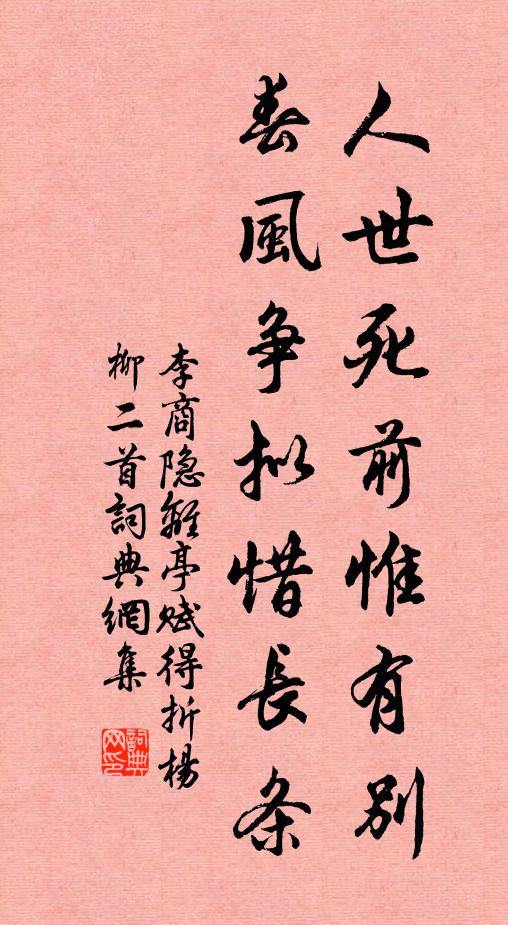 人世死前惟有別
春風争拟惜長条
李商隐離亭赋得折楊
柳二首詞典網集
詞典
网印